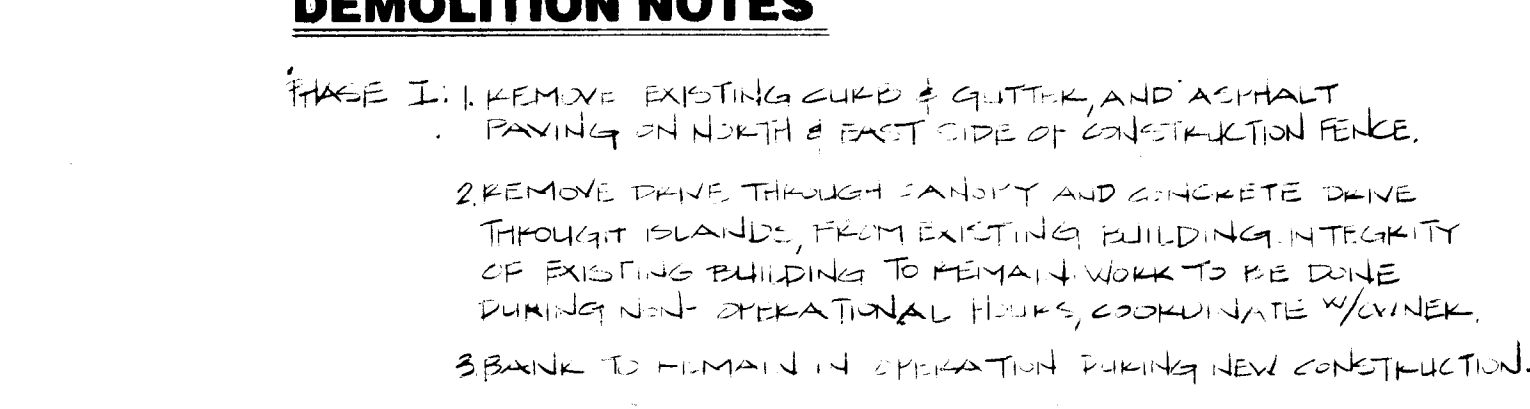 DEMOLITION NOTES
PHASE I: 1. REMOVE EXISTING CURB & GUTTER, AND ASPHALT
PAVING ON NORTH & EAST SIDE OF CONSTRUCTION FENCE.
2. REMOVE DRIVE THROUGH CANOPY AND CONCRETE DRIVE
THROUGH ISLANDS, FROM EXISTING BUILDING. INTEGRITY
OF EXISTING BUILDING TO REMAIN. WORK TO BE DONE
DURING NON-OPERATIONAL HOURS, COORDINATE W/OWNER.
3. BANK TO REMAIN IN OPERATION DURING NEW CONSTRUCTION.